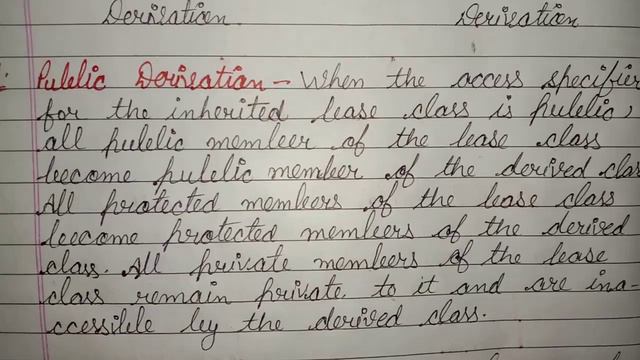 Derivation Derivation
Public Derivation - When the access specifier
for the inherited base class is public,
all public member of the base class
become public member of the derived clas
All protected members of the base class
become protected members of the derived
class. All private members of the base
class remain private to it and are ina-
ccessible by the derived class.